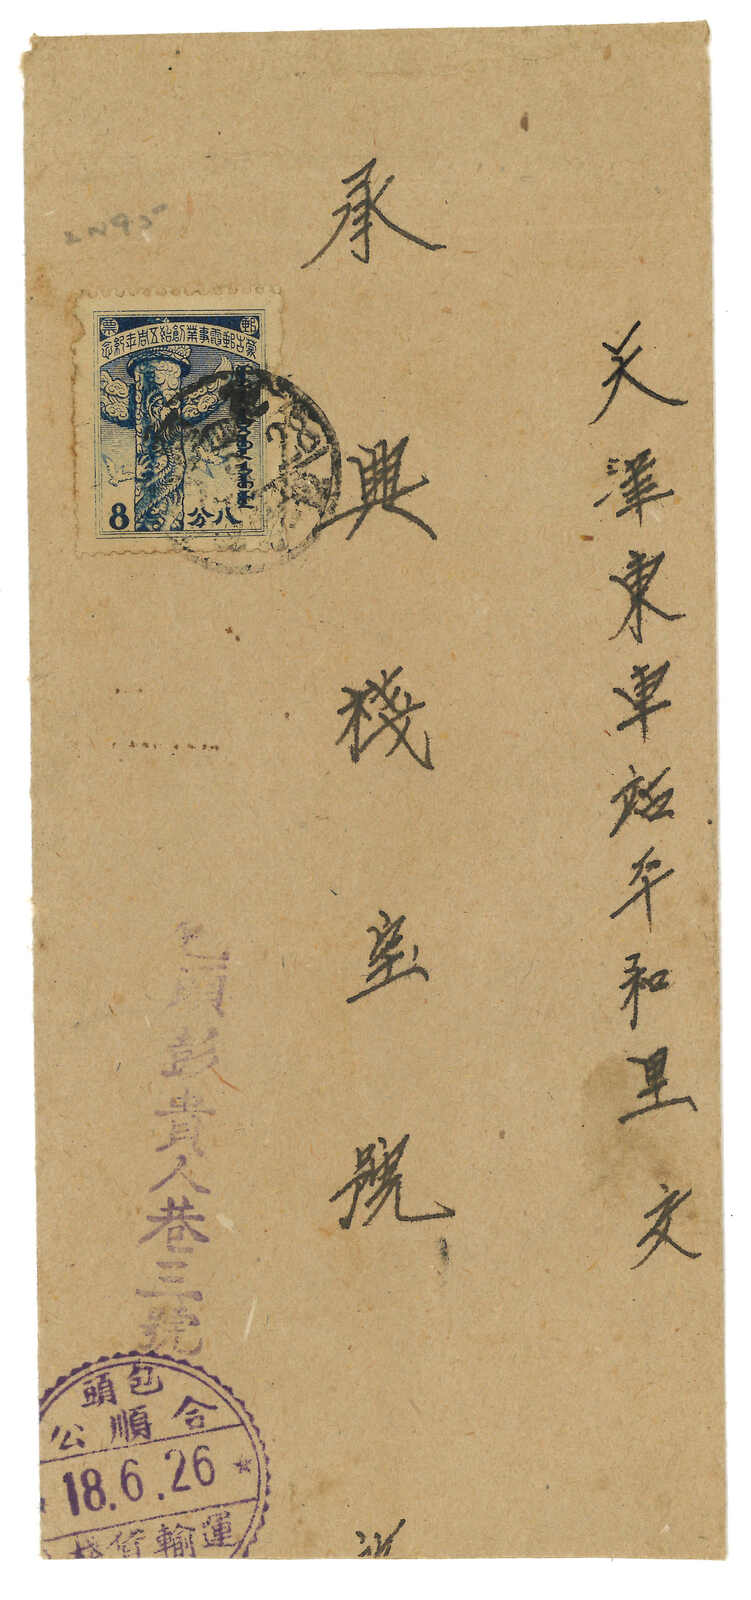 天津東車站平和里交
承興棧寶號
2N95
蒙古郵電事業創始五周年紀念
郵票
8
八分
28
彭貴人巷三號
包頭
合順公
18.6.26
運輸貨棧